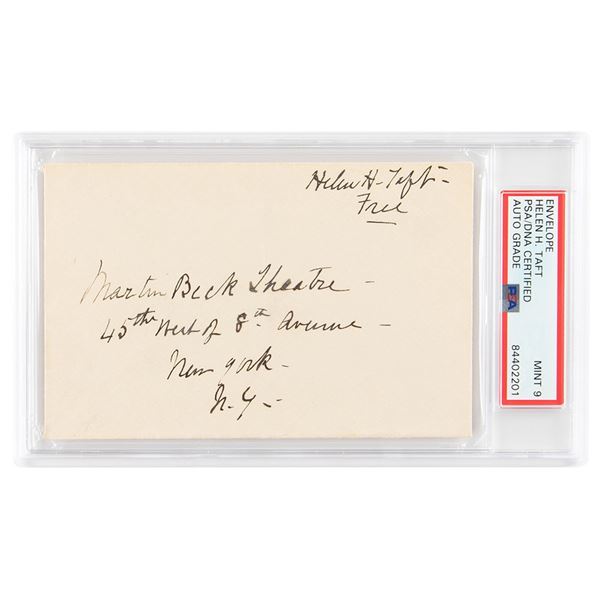 Helen H. Taft -
Free
Martin Beck Theatre -
45the West of 8th. Avenue -
New York -
N.Y. -
ENVELOPE
HELEN H. TAFT
PSA/DNA CERTIFIED
AUTO GRADE
PSA
MINT 9
84402201